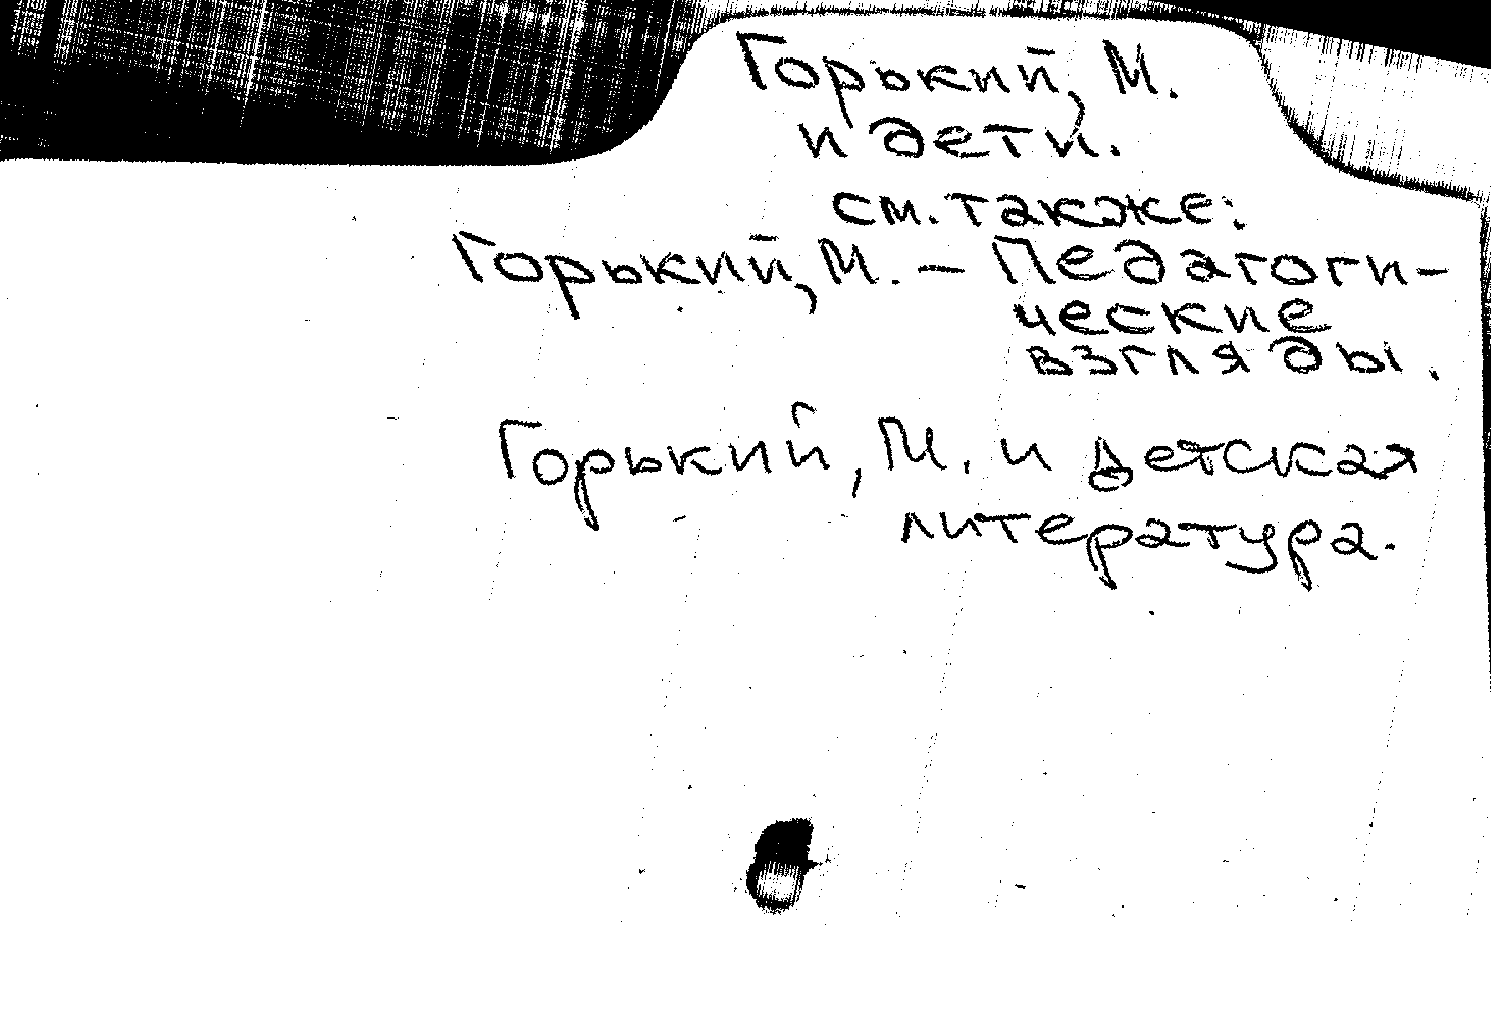 Горький, М.
и дети.
см. также:
Горький, М. – Педагоги-
ческие
взгляды.
Горький, М. и детская
литература.